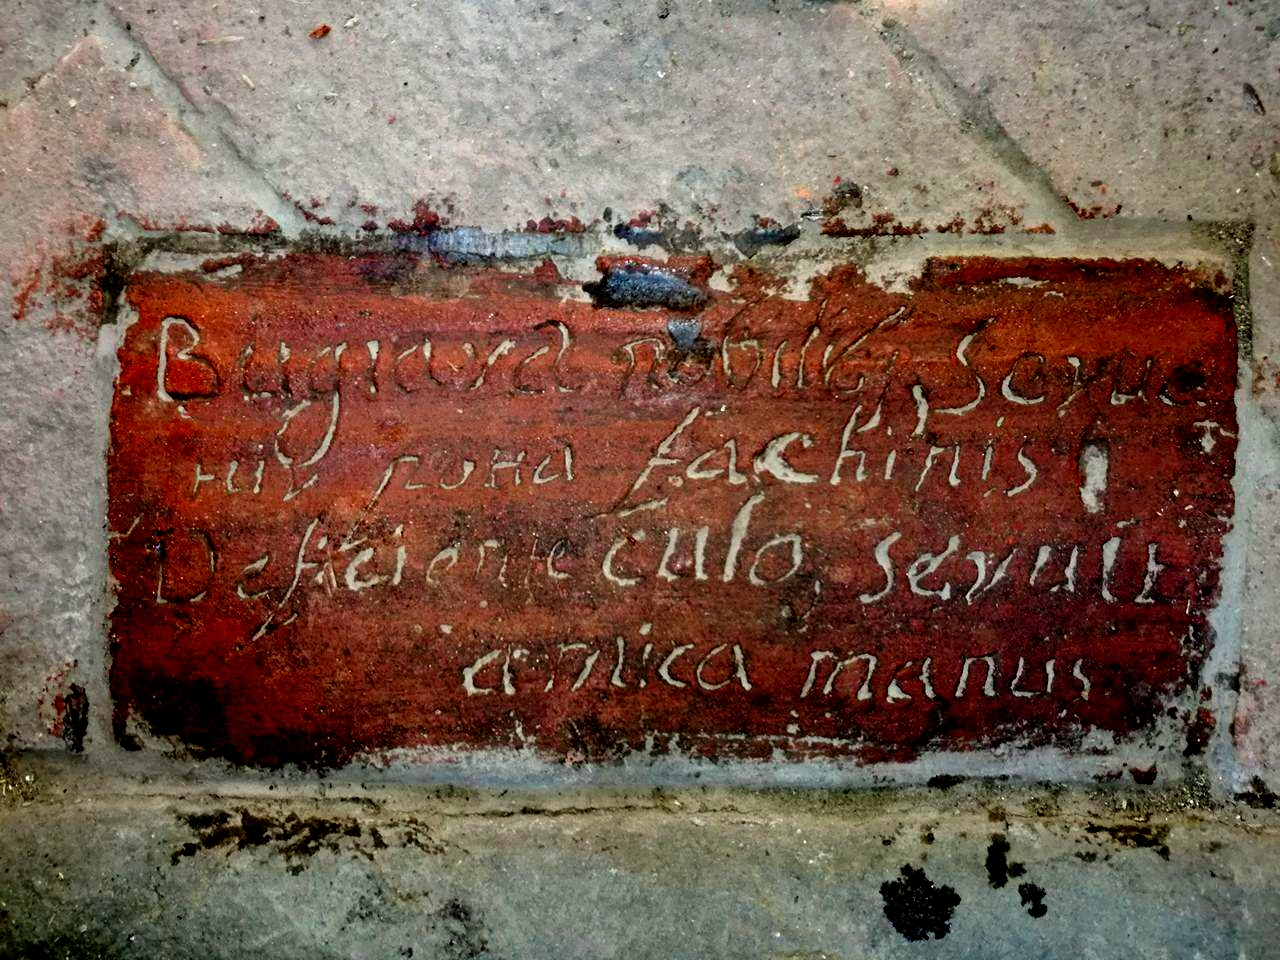 Bugiara nobili, Sexue
fachinis
Deficiente culo, servit
amica manus